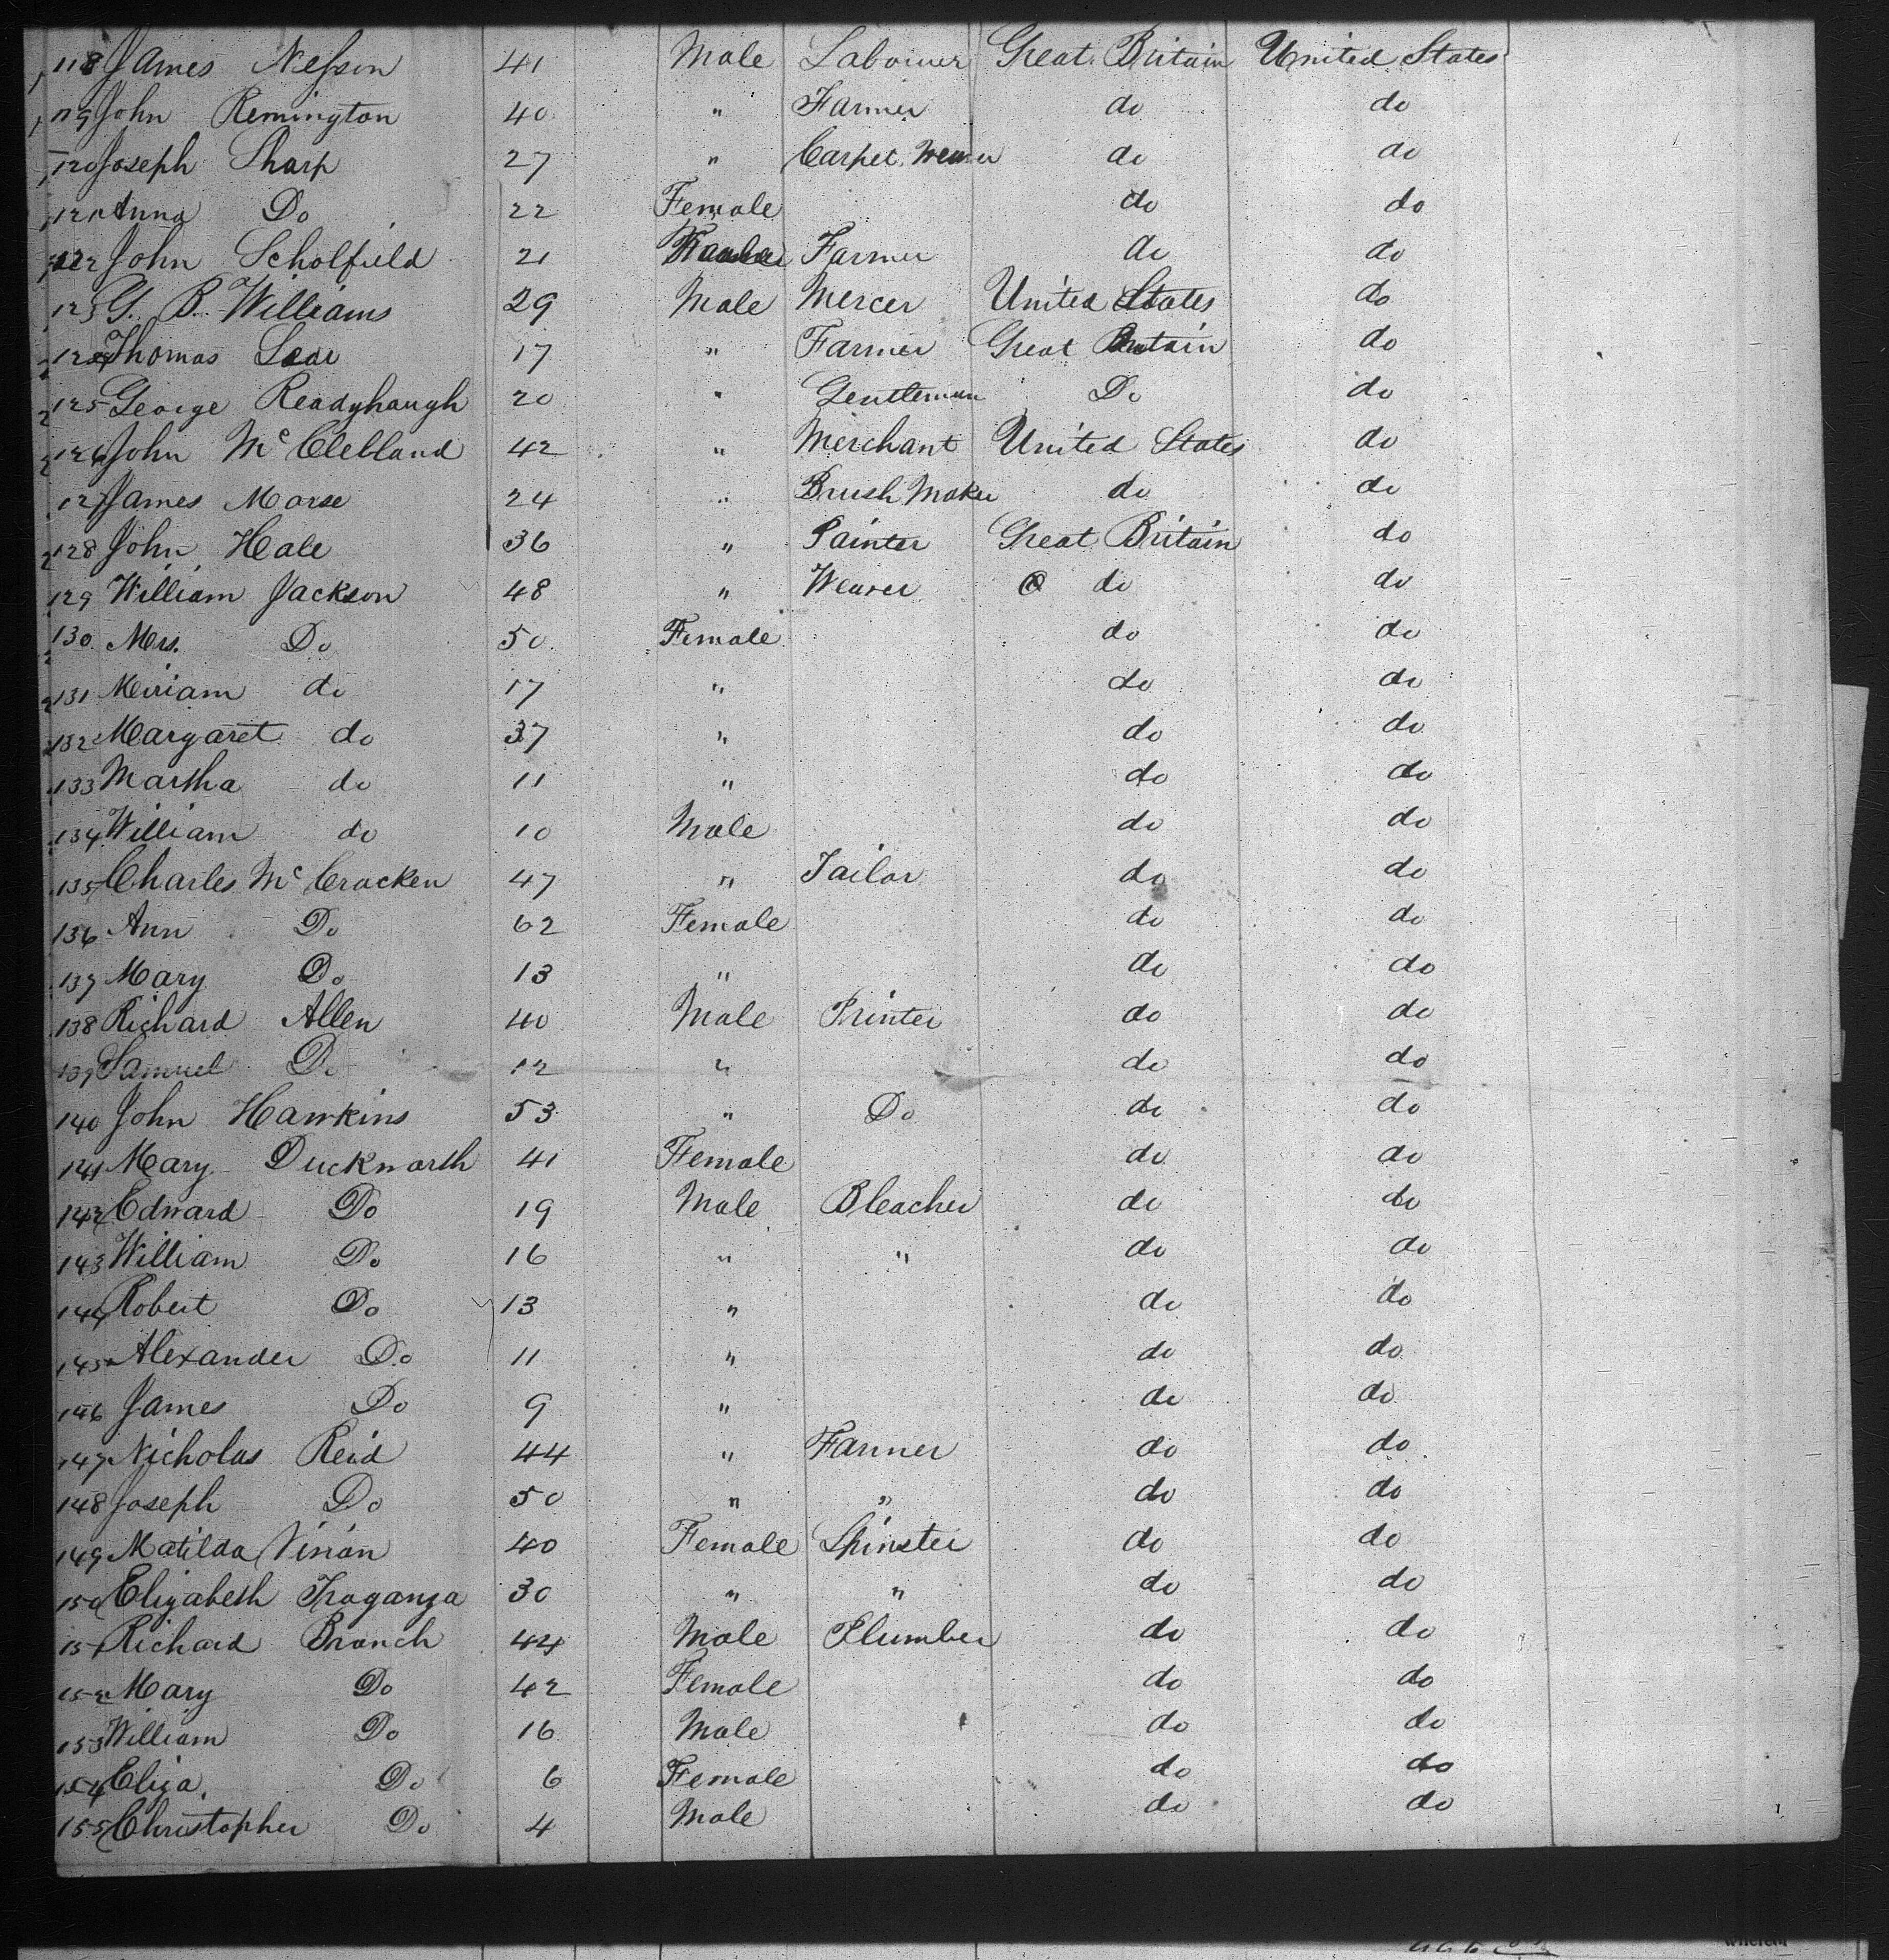 118 James Nesson 41 Male Labourer Great Britain United States
119 John Remington 40 " Farmer do do
120 Joseph Sharp 27 " Carpet Weaver do do
121 Anna Do 22 Female do do
122 John Scholfield 21 Farmer do do
123 G. B. Williams 29 Male Mercer United States do
124 Thomas 17 " Farmer Great Britain do
125 George Readyhaugh 20 " Gentleman Do do
126 John Mc Clelland 42 " Merchant United States do
127 James Morse 24 " Brush Maker do do
128 John Hale 36 " Painter Great Britain do
129 William Jackson 48 " Weaver do do
130 Mrs. Do 50 Female do do
131 Miriam do 17 " do do
132 Margaret do 37 " do do
133 Martha do 11 " do do
134 William do 10 Male do do
135 Charles Mc Cracken 47 " Tailor do do
136 Ann Do 62 Female do do
137 Mary Do 13 " do do
138 Richard Allen 40 Male Printer do do
139 Samuel Do 12 " do do
140 John Hawkins 53 " Do do do
141 Mary Duckworth 41 Female do do
142 Edward Do 19 Male Bleacher do do
143 William Do 16 " " do do
144 Robert Do 13 " do do
145 Alexander Do 11 " do do
146 James Do 9 " do do
147 Nicholas Reid 44 " Farmer do do
148 Joseph Do 50 " " do do
149 Matilda Vivian 40 Female Spinster do do
150 Elizabeth Traganza 30 " " do do
151 Richard Branch 44 Male Plumber do do
152 Mary Do 42 Female do do
153 William Do 16 Male do do
154 Eliza Do 6 Female do do
155 Christopher Do 4 Male do do